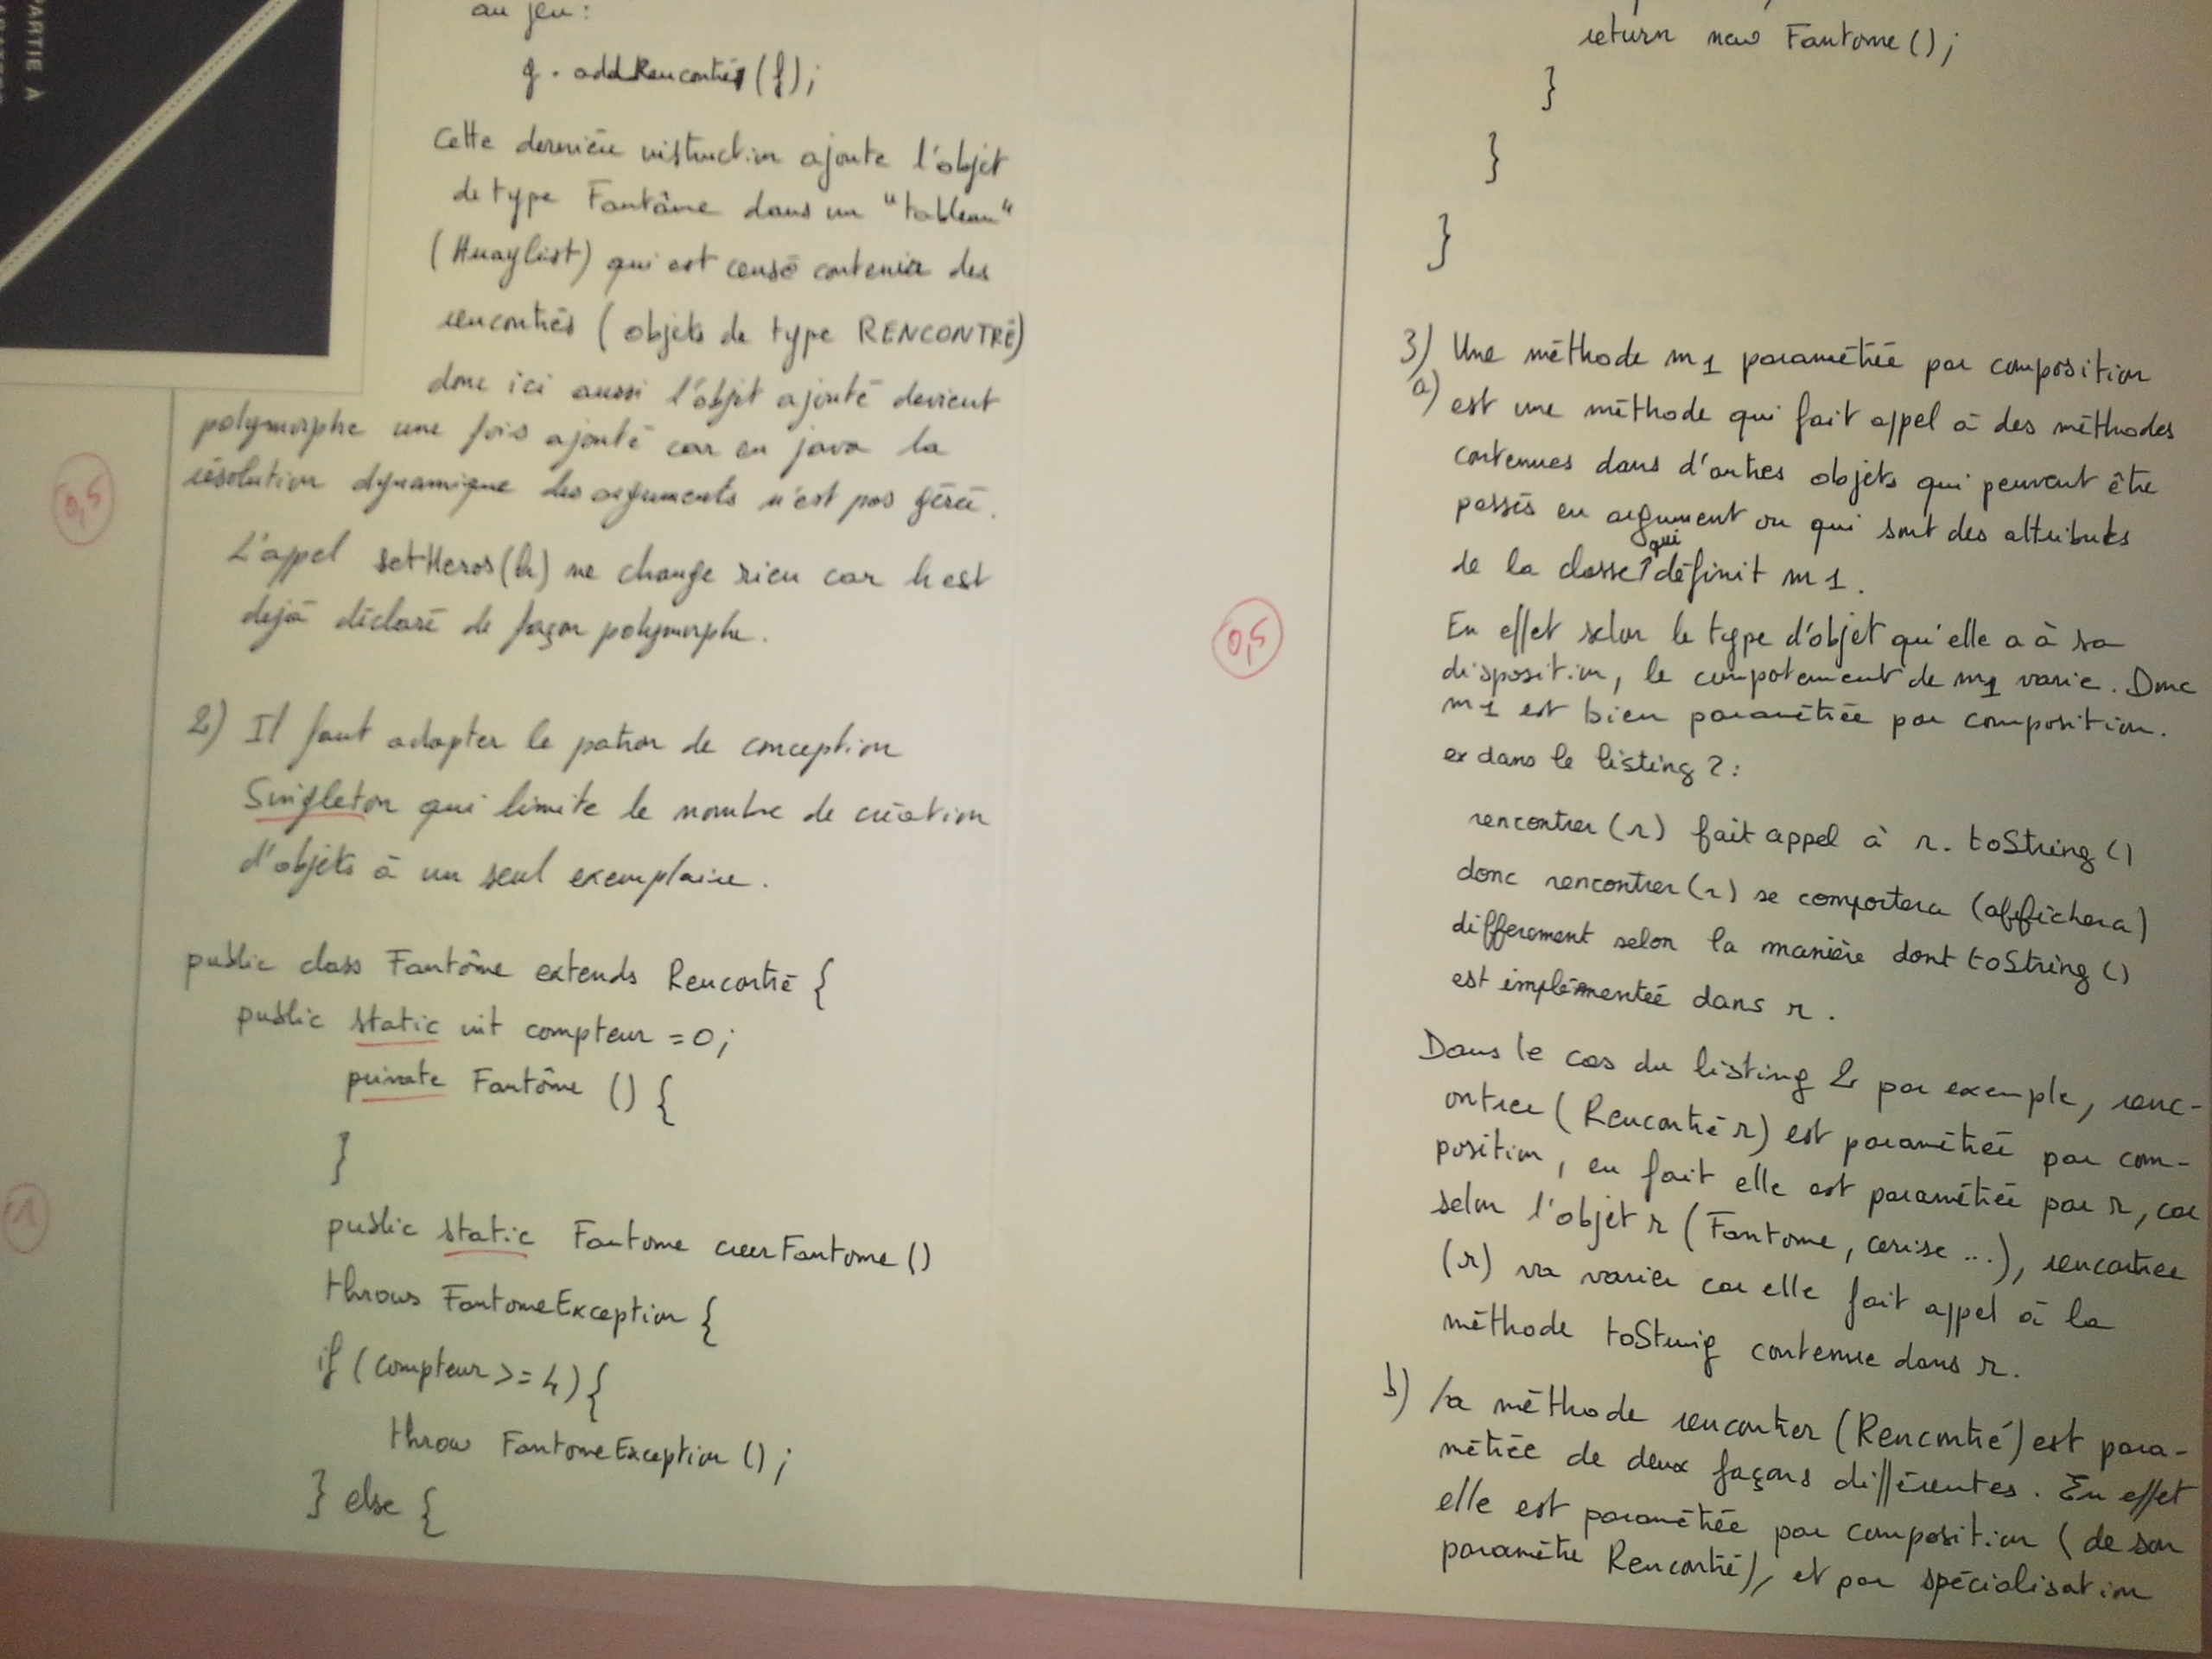 PARTIE A
au jeu :
g.addRencontrés(f);
Cette dernière instruction ajoute l'objet
de type Fantôme dans un "tableau"
(ArrayList) qui est censé contenir des
rencontrés (objets de type RENCONTRÉ)
donc ici aussi l'objet ajouté devient
polymorphe une fois ajouté car en java la
résolution dynamique des arguments n'est pas gérée.
0,5
L'appel setHeros(h) ne change rien car h est
dejà déclaré de façon polymorphe.
2) Il faut adapter le patron de conception
Singleton qui limite le nombre de création
d'objets à un seul exemplaire.
public class Fantôme extends Rencontré {
public static int compteur = 0;
private Fantôme () {
}
1
public static Fantome creerFantome ()
throws FantomeException {
if (compteur >= 4) {
throw FantomeException ();
} else {
return new Fantome ();
}
}
}
3) Une méthode m1 paramétrée par composition
a) est une méthode qui fait appel à des méthodes
contenues dans d'autres objets qui peuvent être
passés en argument ou qui sont des attributs
de la classe qui définit m1.
0,5
En effet selon le type d'objet qu'elle a à sa
disposition, le compotement de m1 varie. Donc
m1 est bien paramétrée par composition.
ex dans le listing 2 :
rencontrer (r) fait appel à r.toString ()
donc rencontrer (r) se comportera (affichera)
differement selon la manière dont toString ()
est implémenteé dans r.
Dans le cas du listing 2 par exemple, renc-
ontrer (Rencontré r) est paramétrée par com-
position, en fait elle est paramétrée par r, car
selon l'objet r (Fantome, cerise ...), rencontrer
(r) va varier car elle fait appel à la
méthode toString contenue dans r.
b) la méthode rencontrer (Rencontré) est para-
métrée de deux façons différentes. En effet
elle est paramétrée par composition (de son
paramètre Rencontré), et par spécialisation